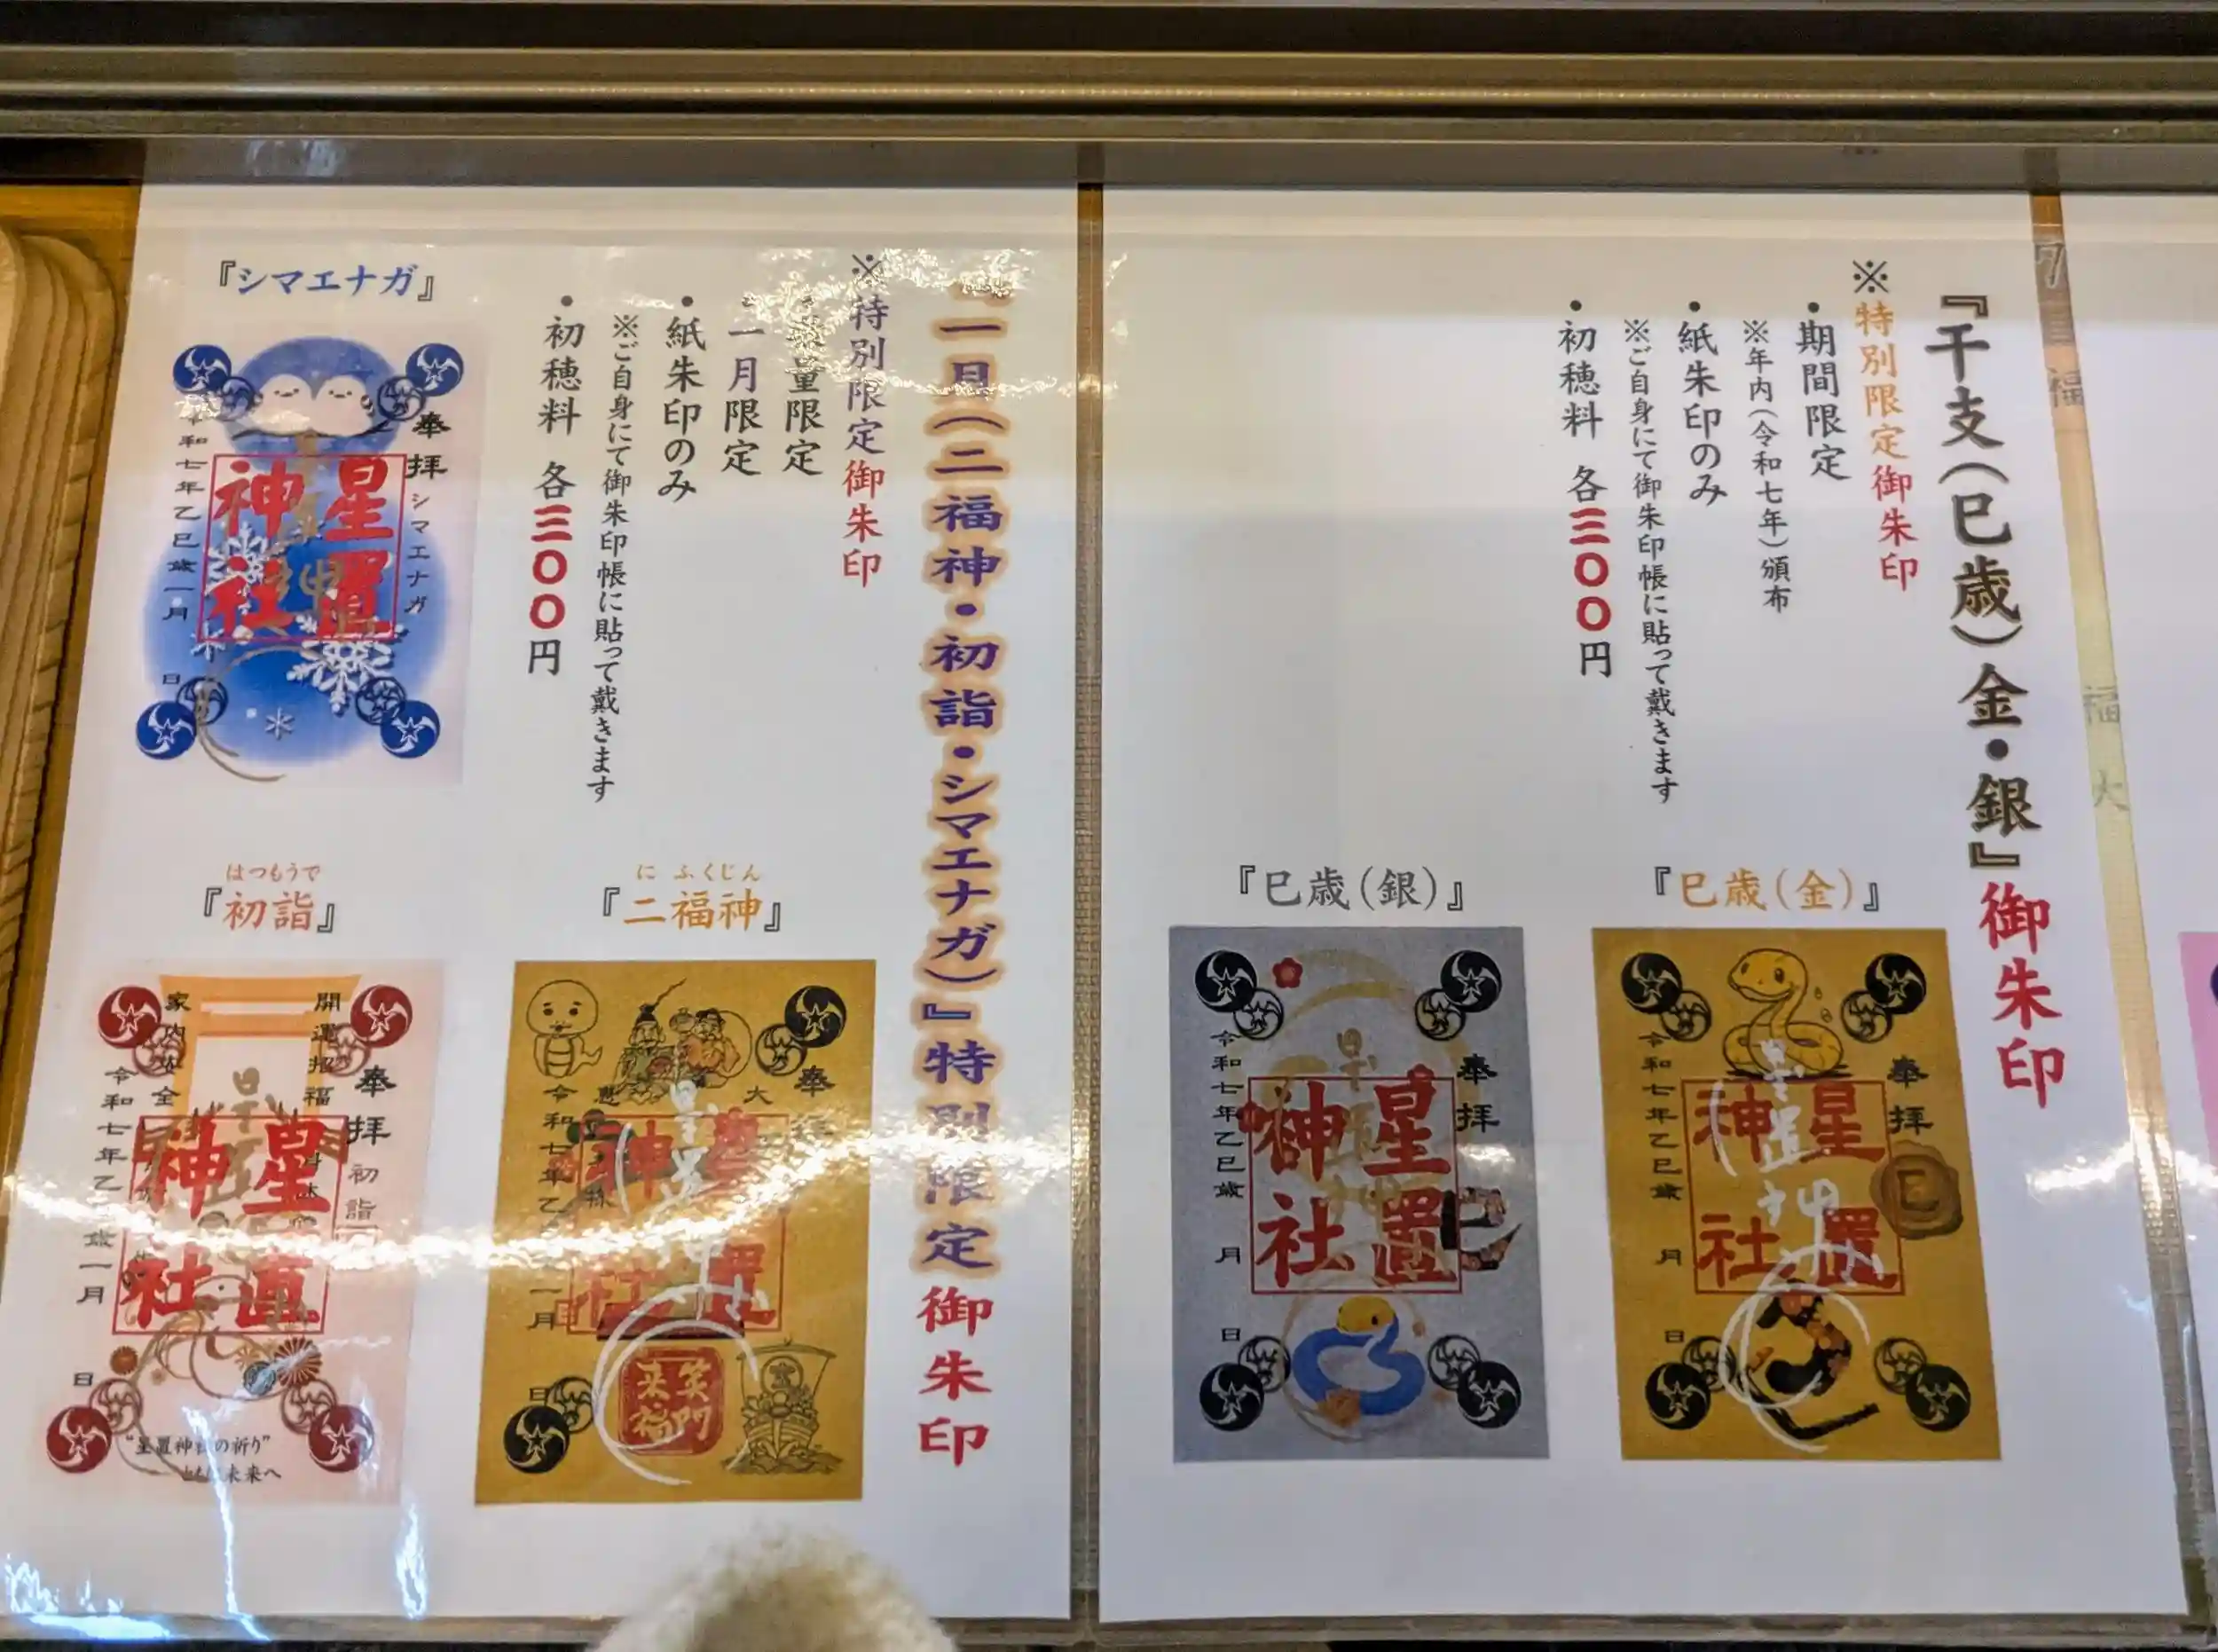 『干支(巳歳)金・銀』御朱印
※特別限定御朱印
・期間限定
※年内(令和七年)頒布
・紙朱印のみ
※ご自身にて御朱印帳に貼って戴きます
・初穂料 各三〇〇円
『巳歳(金)』
奉拝
星置
神社
巳
令和七年乙巳歳
月
日
『巳歳(銀)』
奉拝
星置
神社
巳
令和七年乙巳歳
月
日
一月(二福神・初詣・シマエナガ)』特別限定御朱印
※特別限定御朱印
量限定
・一月限定
・紙朱印のみ
※ご自身にて御朱印帳に貼って戴きます
・初穂料 各三〇〇円
『シマエナガ』
奉拝
シマエナガ
星置
神社
令和七年乙巳歳一月
日
にふくじん
『二福神』
奉拝
大
置
神
令和七年乙
一月
日
笑門
来福
はつもうで
『初詣』
開運招福
家内安全
奉拝
初詣
星置
神社
令和七年乙
歳一月
日
"星置神社の祈り"
未来へ